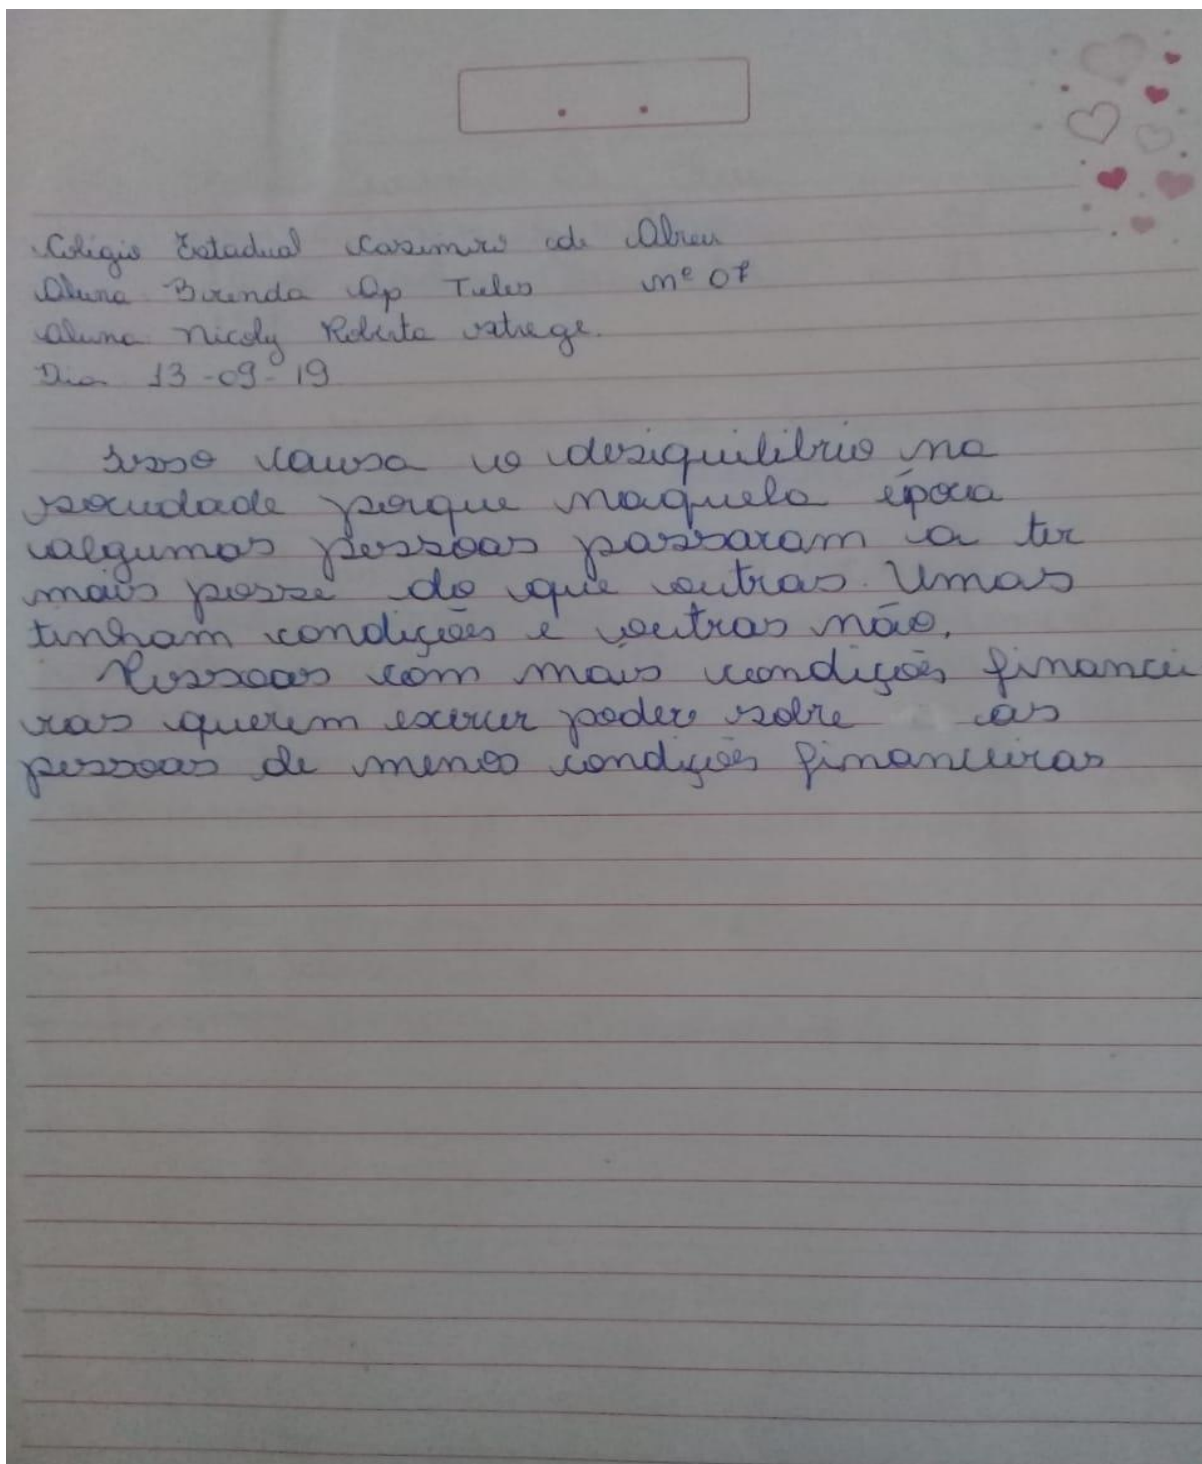 Colégio Estadual Casimiro de Abreu
Aluna Brenda Ap Teles nº 07
Aluna Nicoly Roberta
Dia 13-09-19
Isso causa o desiquilibrio na
sociedade porque naquela época
algumas pessoas passaram a ter
mais posse do que outras. Umas
tinham condições e outras não.
Pessoas com mais condições financei
ras querem exercer poder sobre as
pessoas de menos condições financeiras